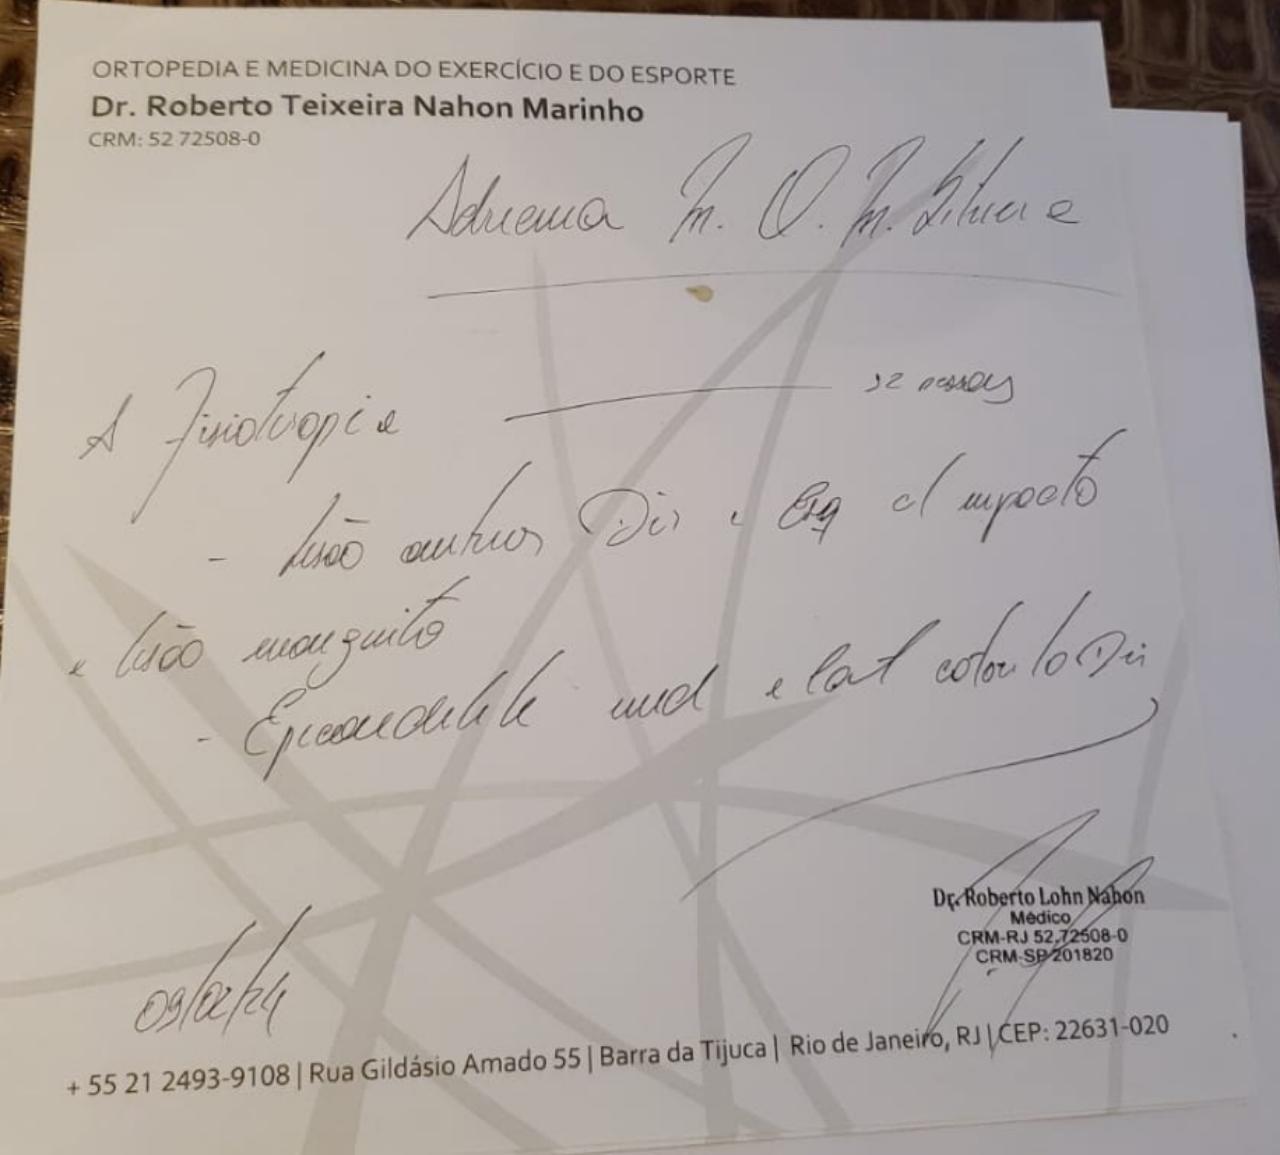 ORTOPEDIA E MEDICINA DO EXERCÍCIO E DO ESPORTE
Dr. Roberto Teixeira Nahon Marinho
CRM: 52 72508-0
Adriana M. O. M. Silveira
A Fisioterapia 12 sessões
- Lesão ombros Dir e Esq c/ impacto
e lesão manguito
- Epicondilite med e lat cotovelo Dir
Dr. Roberto Lohn Nahon
Médico
CRM-RJ 52.72508-0
CRM-SP 201820
09/02/24
+ 55 21 2493-9108 | Rua Gildásio Amado 55 | Barra da Tijuca | Rio de Janeiro, RJ | CEP: 22631-020